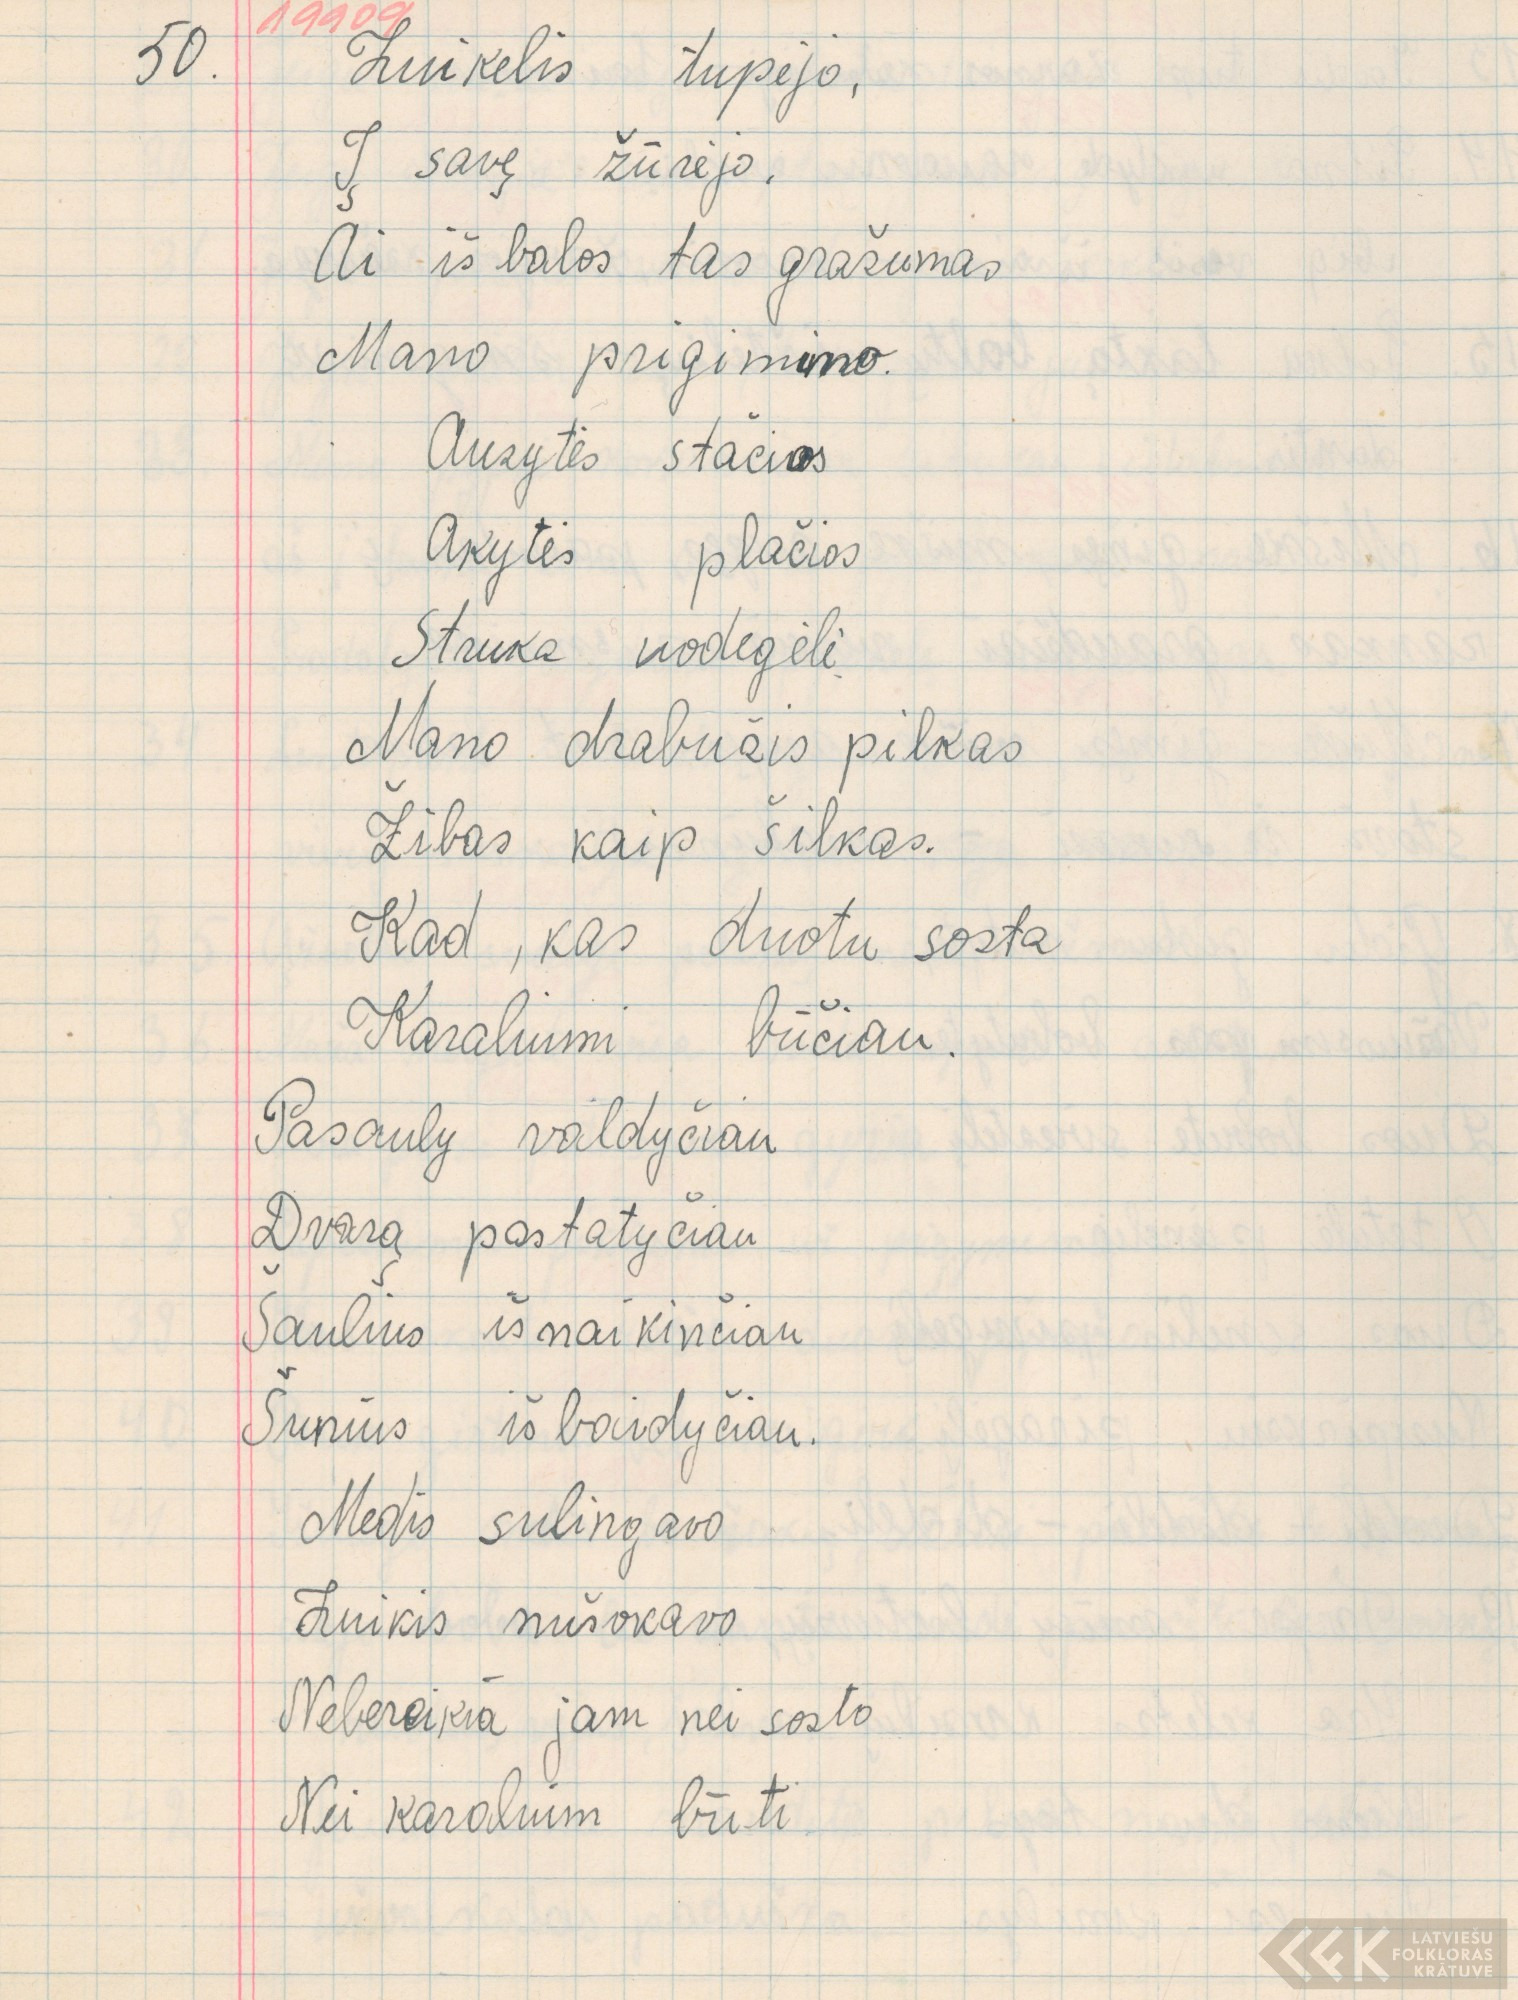 19909
50. Zuikelis tupėjo,
Į savę žūrėjo.
Ai iš balos tas gražumas
Mano prigimimo.
Auzytės stačios
Akytės plačios
Struka uodegėlė
Mano drabužis pilkas
Žibas kaip šilkas.
Kad, kas duotu sosta
Karaliumi būčiau.
Pasauly valdyčiau
Dvarą pastatyčiau
Šaulius išnaikinčiau
Šunius išbaidyčiau.
Medis sulingavo
Zuikis nušokavo
Nebereikia jam nei sosto
Nei karalium būti
LATVIEŠU
FOLKLORAS
KRĀTUVE